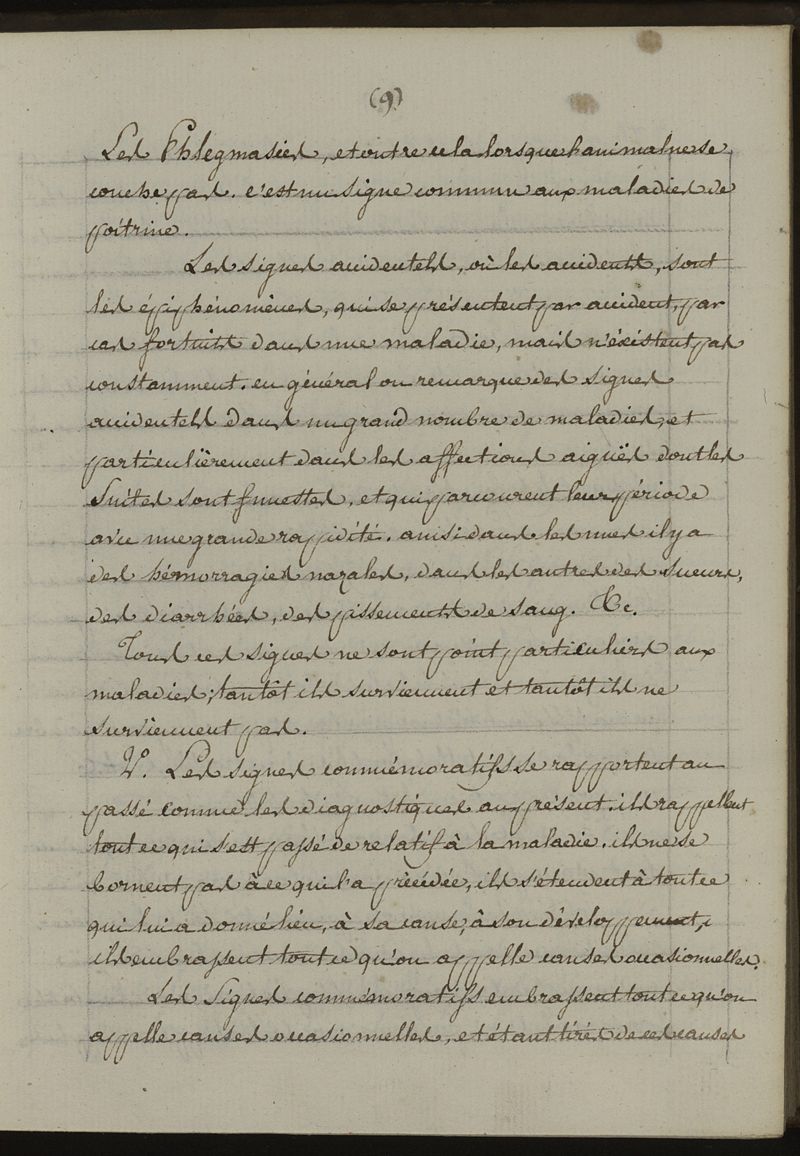 (9)
Les Phlegmasies, et outre cela lorsque l'animal ne se
couche pas. c'est un signe commun aux maladies de
poitrine.
Les signes accidentels, où les accidents, sont
les épiphénomènes, qui se présentent par accident, par
cas fortuits dans une maladie, mais n'éxistent pas
constamment. en général on remarque des signes
accidentels dans un grand nombre de maladies, et
particulièrement dans les affections aiguës dont les
suites sont funestes, et qui parcourent leur période
avec une grande rapidité. ainsi dans les unes il y a
des hémorragies nazales, dans les autres des sueurs,
des diarrhées, des pissements de sang. &c.
Tous ces signes ne sont point particuliers aux
maladies; tantôt ils surviennent et tantôt ils ne
surviennent pas.
V. Les signes commémoratifs se rapportent au
passé comme les diagnostiques au présent. ils rappellent
tout ce qui s'est passé de relatif à la maladie. ils ne se
bornent pas à ce qui l'a précédée, ils s'étendent à tout ce
qui lui a donné lieu, à sa cause, à son développement,
ils embrassent tout ce qu'on appelle causes occasionnelles.
Les Signes commémoratifs embrassent tout ce qu'on
appelle causes occasionnelles, et étant tirés de ces causes